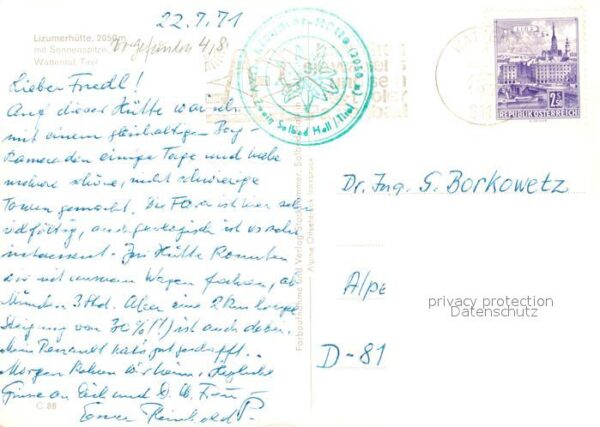 22.7.71
Lizumerhütte, 2050m
mit Sonnenspitze
Wattental, Tirol
Vorgefunden 4,8
Lieber Friedl!
Auf dieser Hütte war ich
mit einem gleichaltrigen Berg-
kameraden einige Tage und habe
mehrere schöne, nicht schwierige
Touren gemacht. Die Flora ist hier sehr
vielfältig, auch geologisch ist es sehr
interessant. Zur Hütte konnten
wir mit unserem Wagen fahren, ab
München 3 Std. Aber eine 2 km lange
Steigung von 30%(!) ist auch dabei.
Mein Renault hat's gut geschafft..
Morgen fahren wir heim. Herzliche
Grüsse an Dich und D. lb. Frau
Reinhold
C 86
Farbaufnahme und Verlag
Alpine Offset
Lizumer-Hütte (2050 m)
Zweig Solbad Hall/Tirol
LINZ
2.50
REPUBLIK ÖSTERREICH
Dr. Ing. G. Borkowetz
Alpe
D-81
privacy protection
Datenschutz